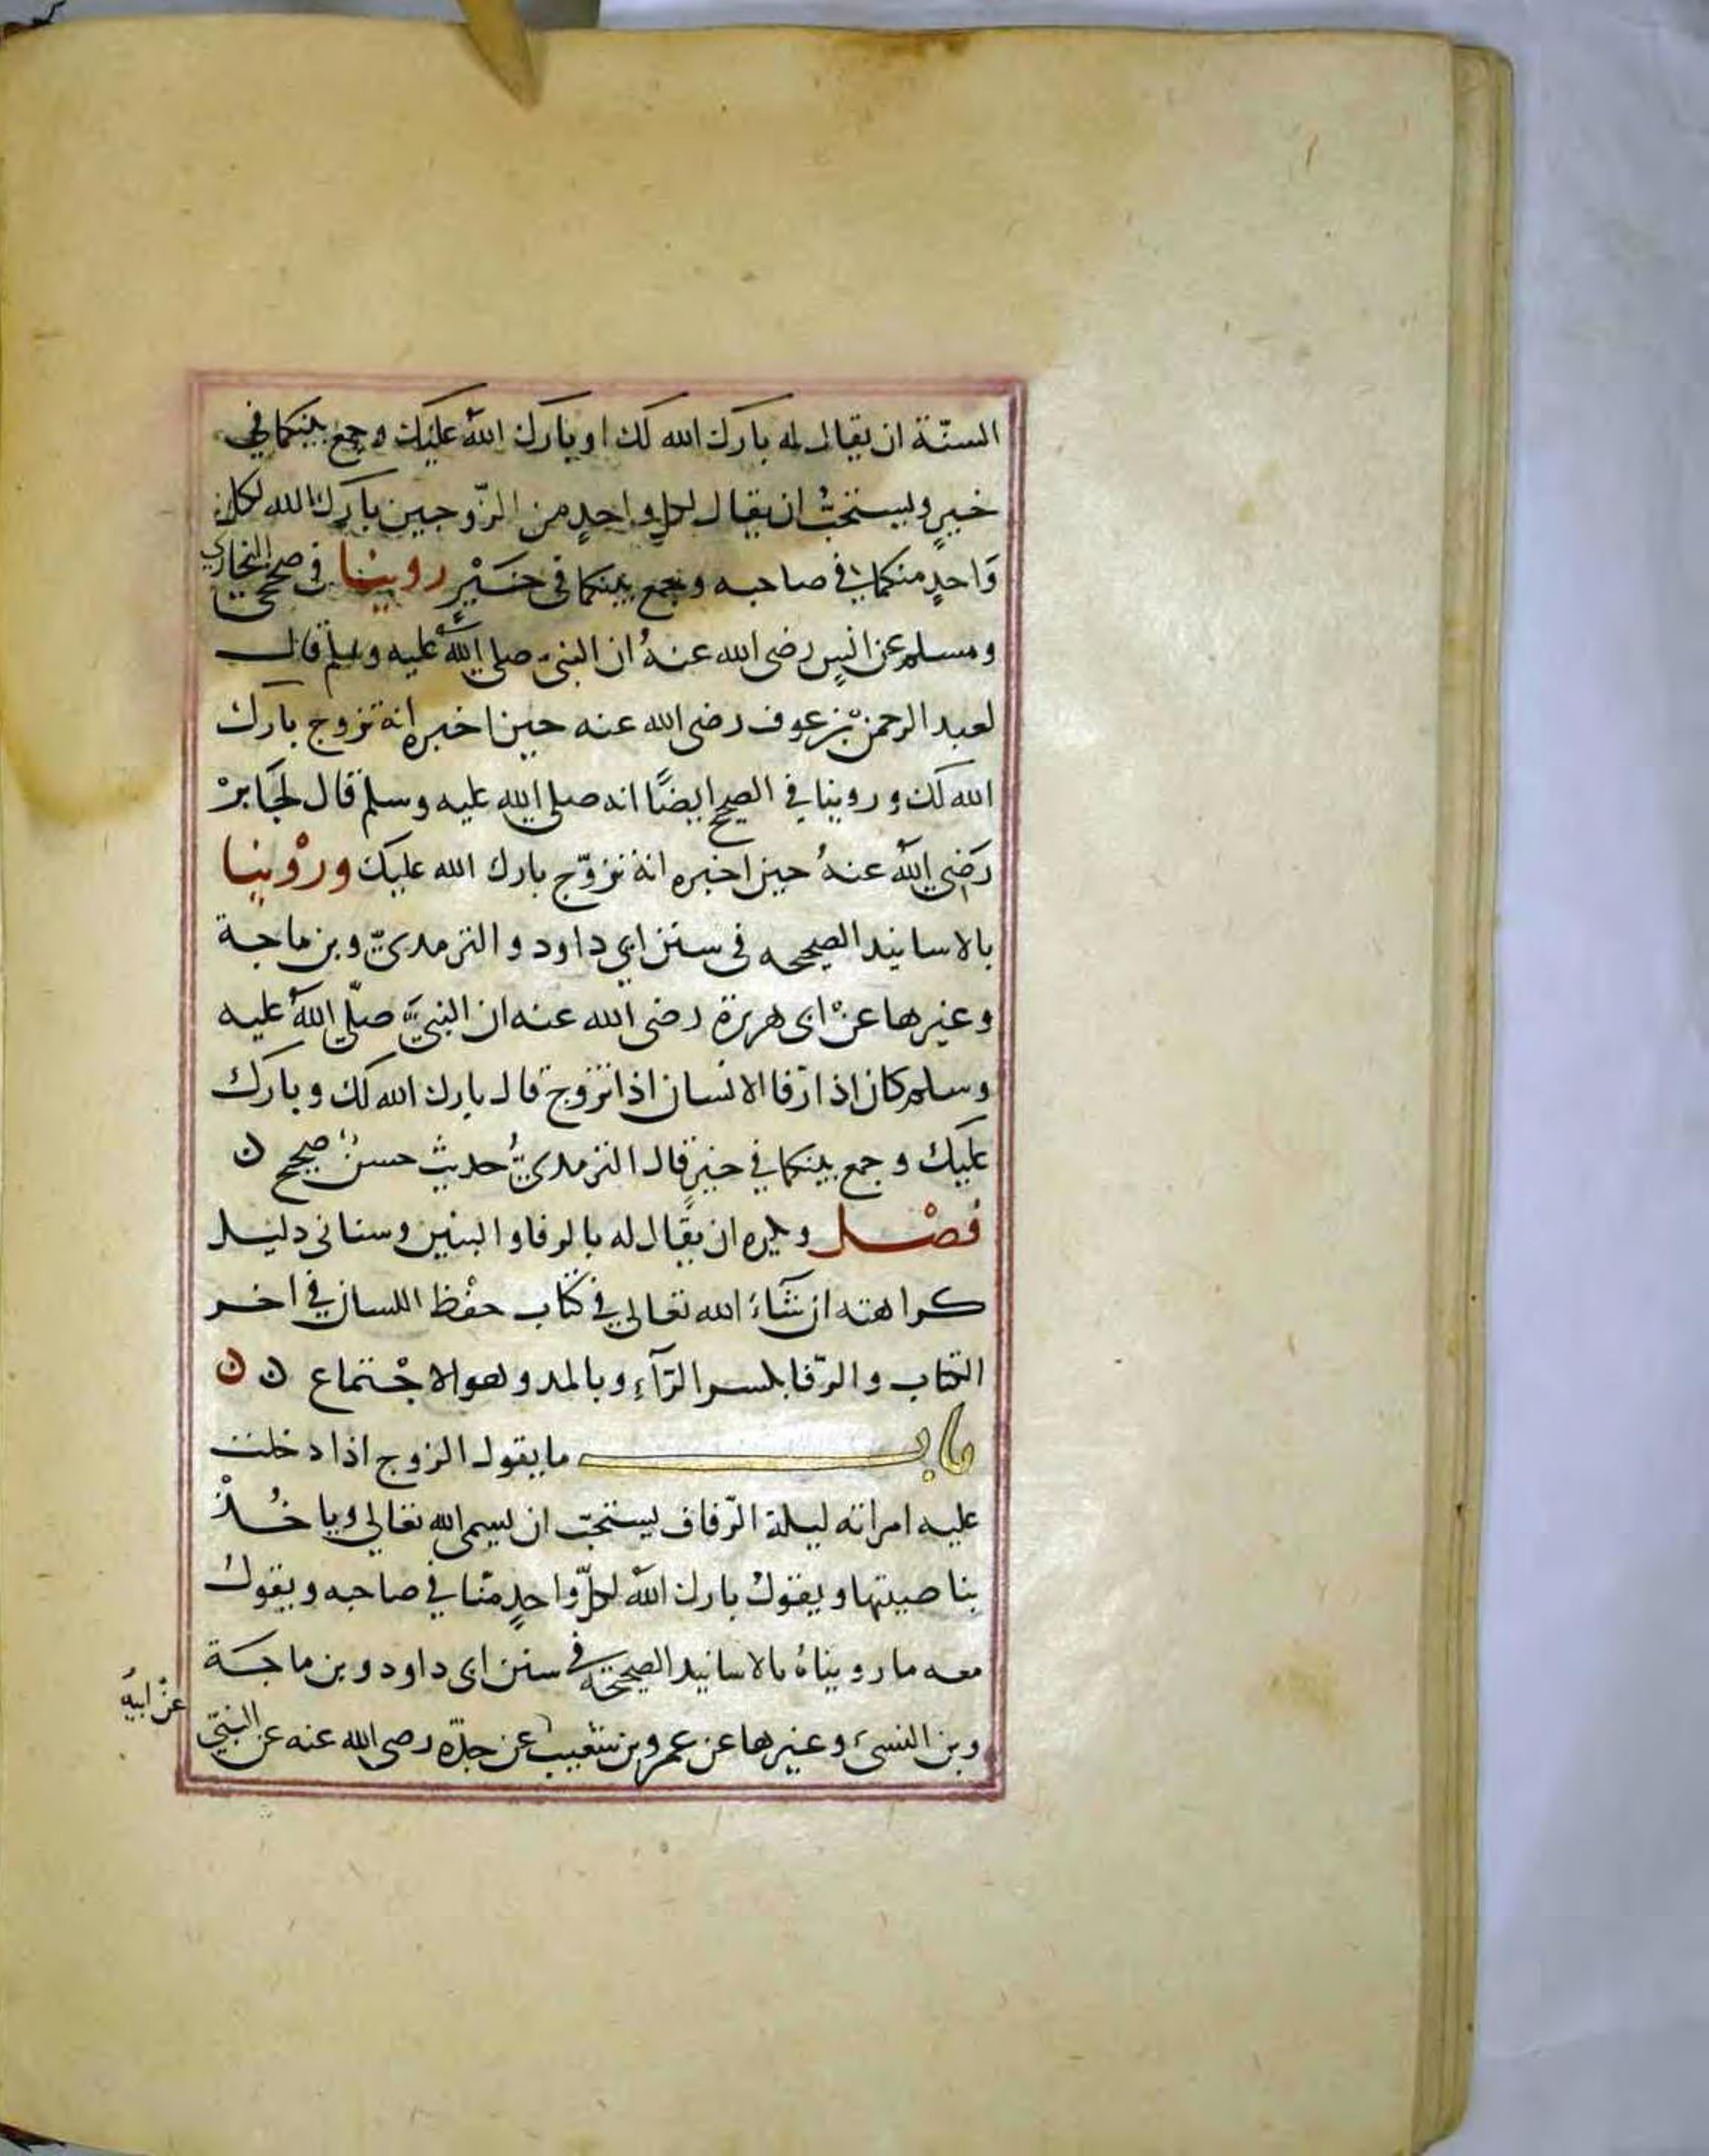 السنّة ان يقال له بارك الله لك او بارك اللهُ عليك وجمع بينكما في
خيرٍ ويستحبُّ ان يقال لكلِ واحدٍ من الزّوجين بارك الله لكل
وَاحدٍ منكما في صاحبه وجمع بينكما في خَيْرٍ روينا في صحيحي البخاري
ومسلم عن انسٍ رضى الله عنهُ ان النبىّ صلي اللهُ عليه وسلم قال
لعبد الرحمنْ بن عوف رضى الله عنه حين اخبره انه تزوج بارك
الله لك وروينا في الصحيح ايضًا انه صلي الله عليه وسلم قال لجَابرْ
رَضي اللهُ عنهُ حين اخبره انهُ تزوّج بارك الله عليك ورْوينا
بالاسانيد الصحيحه فى سنن ابي داود والترمدىّ وبن ماجة
وغيرها عنْ ابى هريرة رضى الله عنه ان النبيَّ صلّي اللهُ عليه
وسلم كان اذا رفا الانسان اذا تزوج قال بارك الله لك وبارك
عليك وجمع بينكما في خيرٍ قال الترمدىُّ حديث حسنٌ صحيح ن
فصْل ويكره ان يقَال له بالرفا والبنين وسناتى دليل
كراهته ان شَاءَ الله تعالي في كتاب حفْظ اللسان في اخر
الكتاب والرّفا بكسر الرّآءِ وبالمد وهو الاجْتماع ن ن
باب ما يقول الزوج اذا دخلت
عليه امراته ليلة الزّفاف يستحبّ ان يسمى الله تعالي وياخُذْ
بناصيتها ويقولُ بارك اللهُ لكلّ واحدٍ منّا في صاحبه ويقول
معه ما رويناهُ بالاسانيد الصحيحة في سنن ابى داود وبن ماجَة
وبن السنىّ وغيرها عن عمرو بن شعيب عن جدّه رضى الله عنه عن النبيّ
عنْ ابيهِ